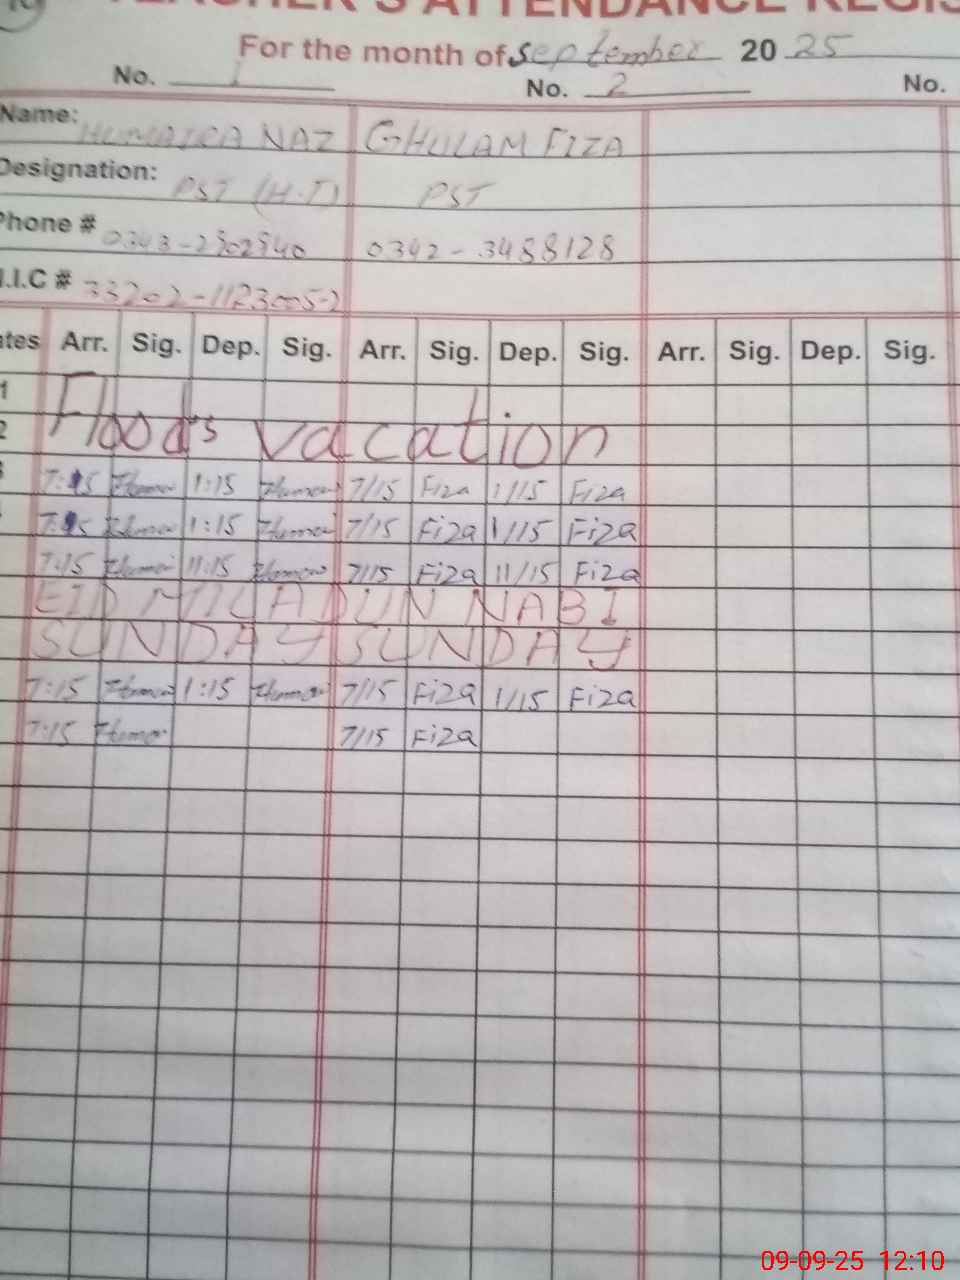 TEACHER'S ATTENDANCE REGIS
For the month of September 20 25
No. 1 No. 2 No.
Name: HUMAIRA NAZ GHULAM FIZA
Designation: PST (H.T) PST
Phone # 0343-2902940 0342-3488128
I.I.C # 33202-1123005-2
ates Arr. Sig. Dep. Sig. Arr. Sig. Dep. Sig. Arr. Sig. Dep. Sig.
1
2 Flood's vacation
7:15 Huma 1:15 Huma 7/15 Fiza 1/15 Fiza
7:15 Huma 1:15 Huma 7/15 Fiza 1/15 Fiza
7:15 Huma 11:15 Huma 7/15 Fiza 11/15 Fiza
EID MILADUN NABI
SUNDAY SUNDAY
7:15 Huma 1:15 Huma 7/15 Fiza 1/15 Fiza
7:15 Huma 7/15 Fiza
09-09-25 12:10